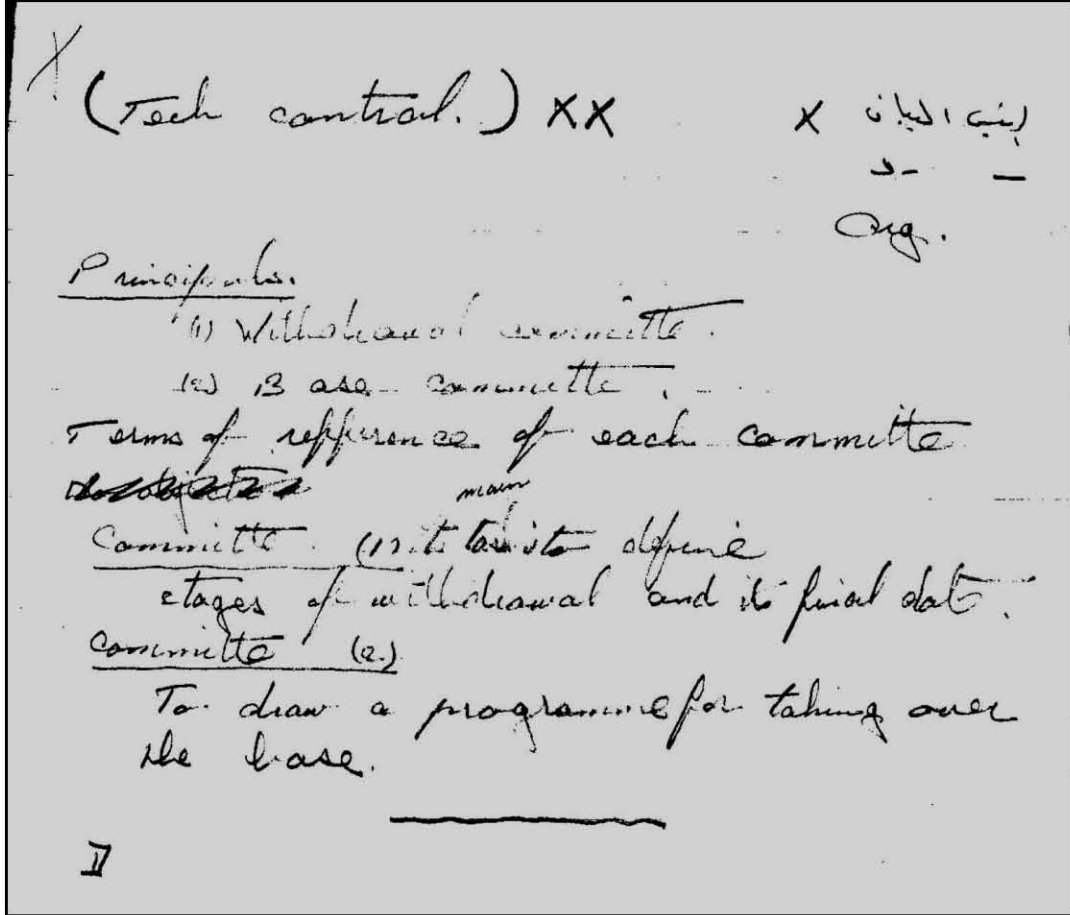 X
(Tech control.) XX X
Org.
Principals.
(1) Withdrawal committe.
(2) Base committe.
Terms of refference of each committe
main
Committe (1) its task is to define
stages of withdrawal and its final date.
Committe (2.)
To draw a programme for taking over
the base.